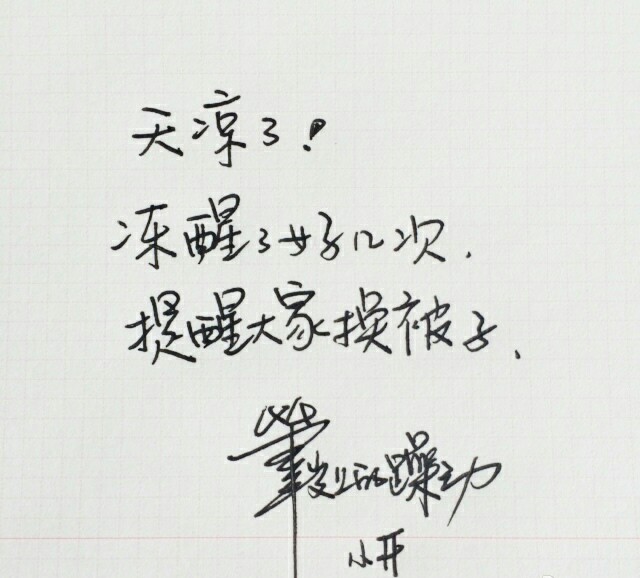 天凉了!
冻醒了好几次.
提醒大家换被子.
筆尖上的躁动
小开